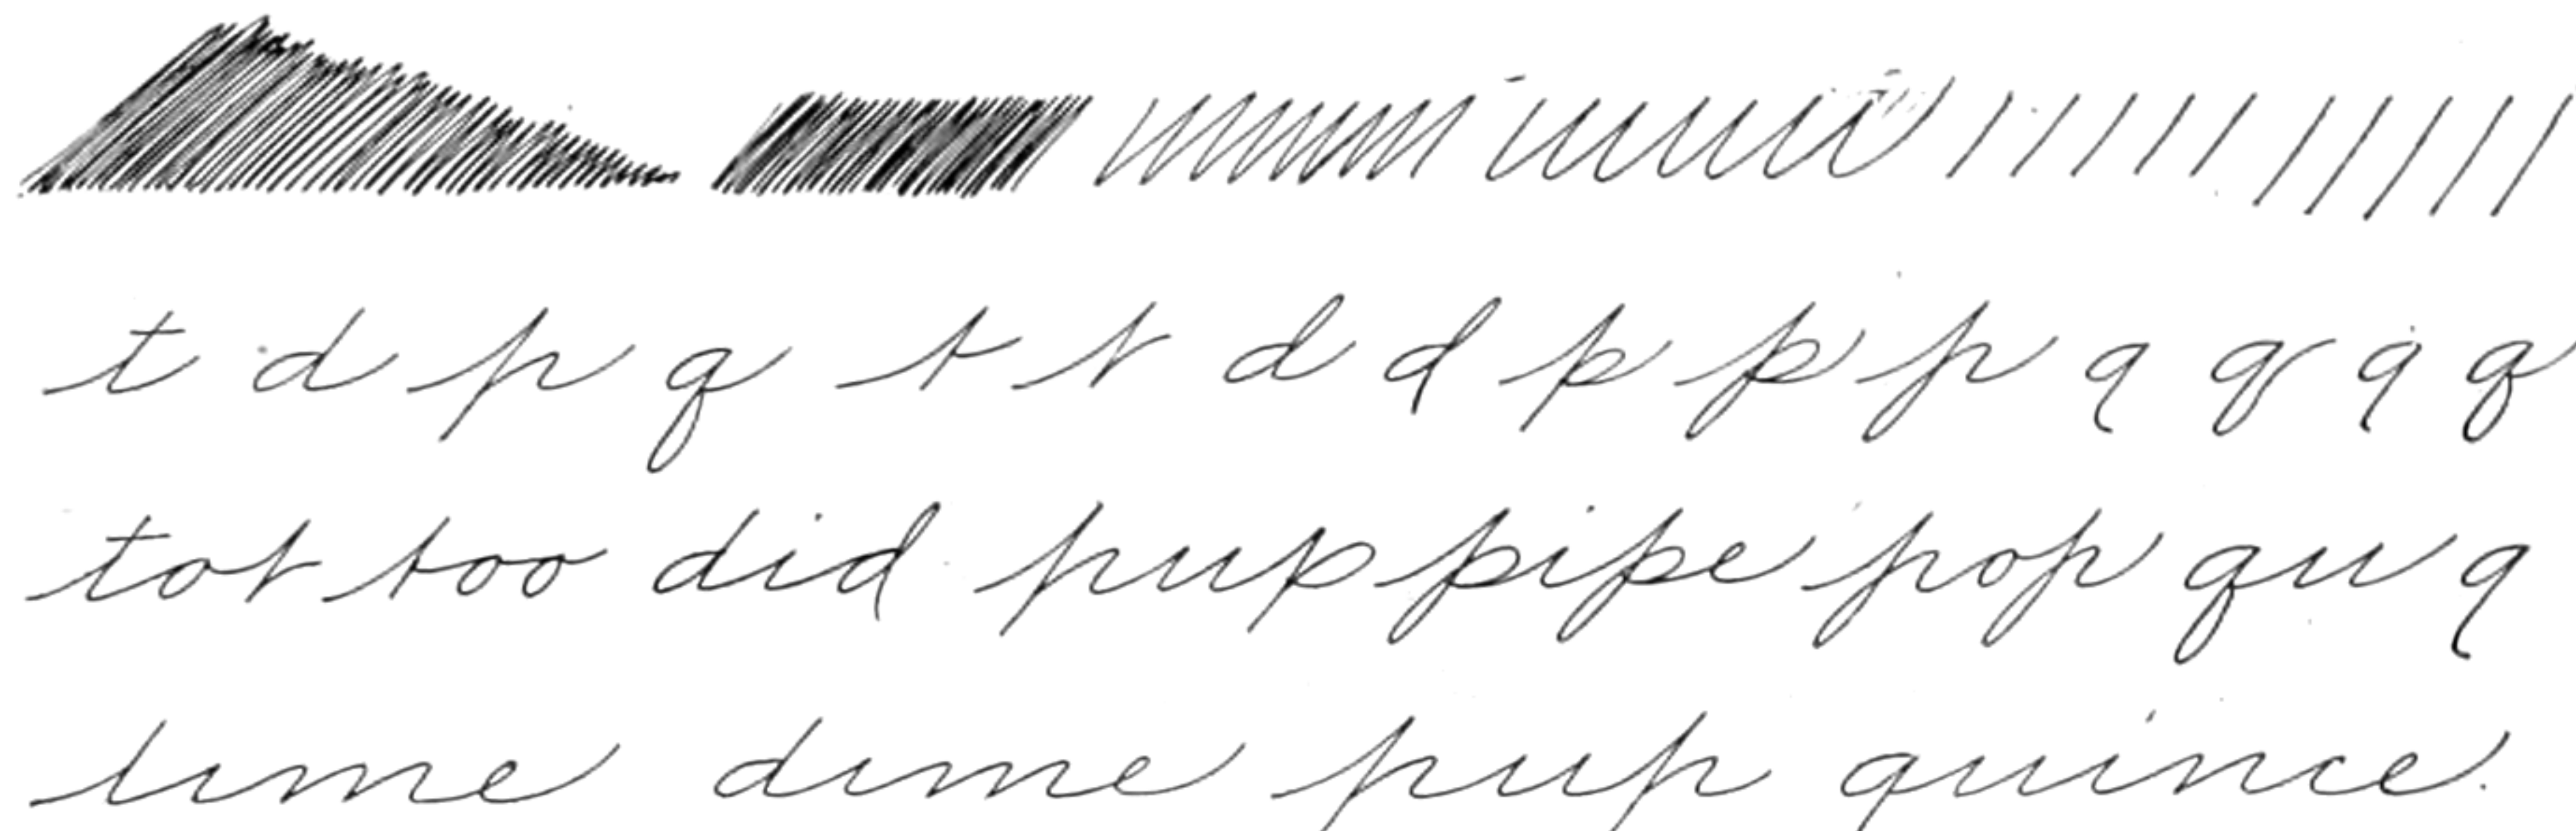 t d p q t t d d p p p q q q q
tot too did pup pipe pop qu q
time dime pup quince.